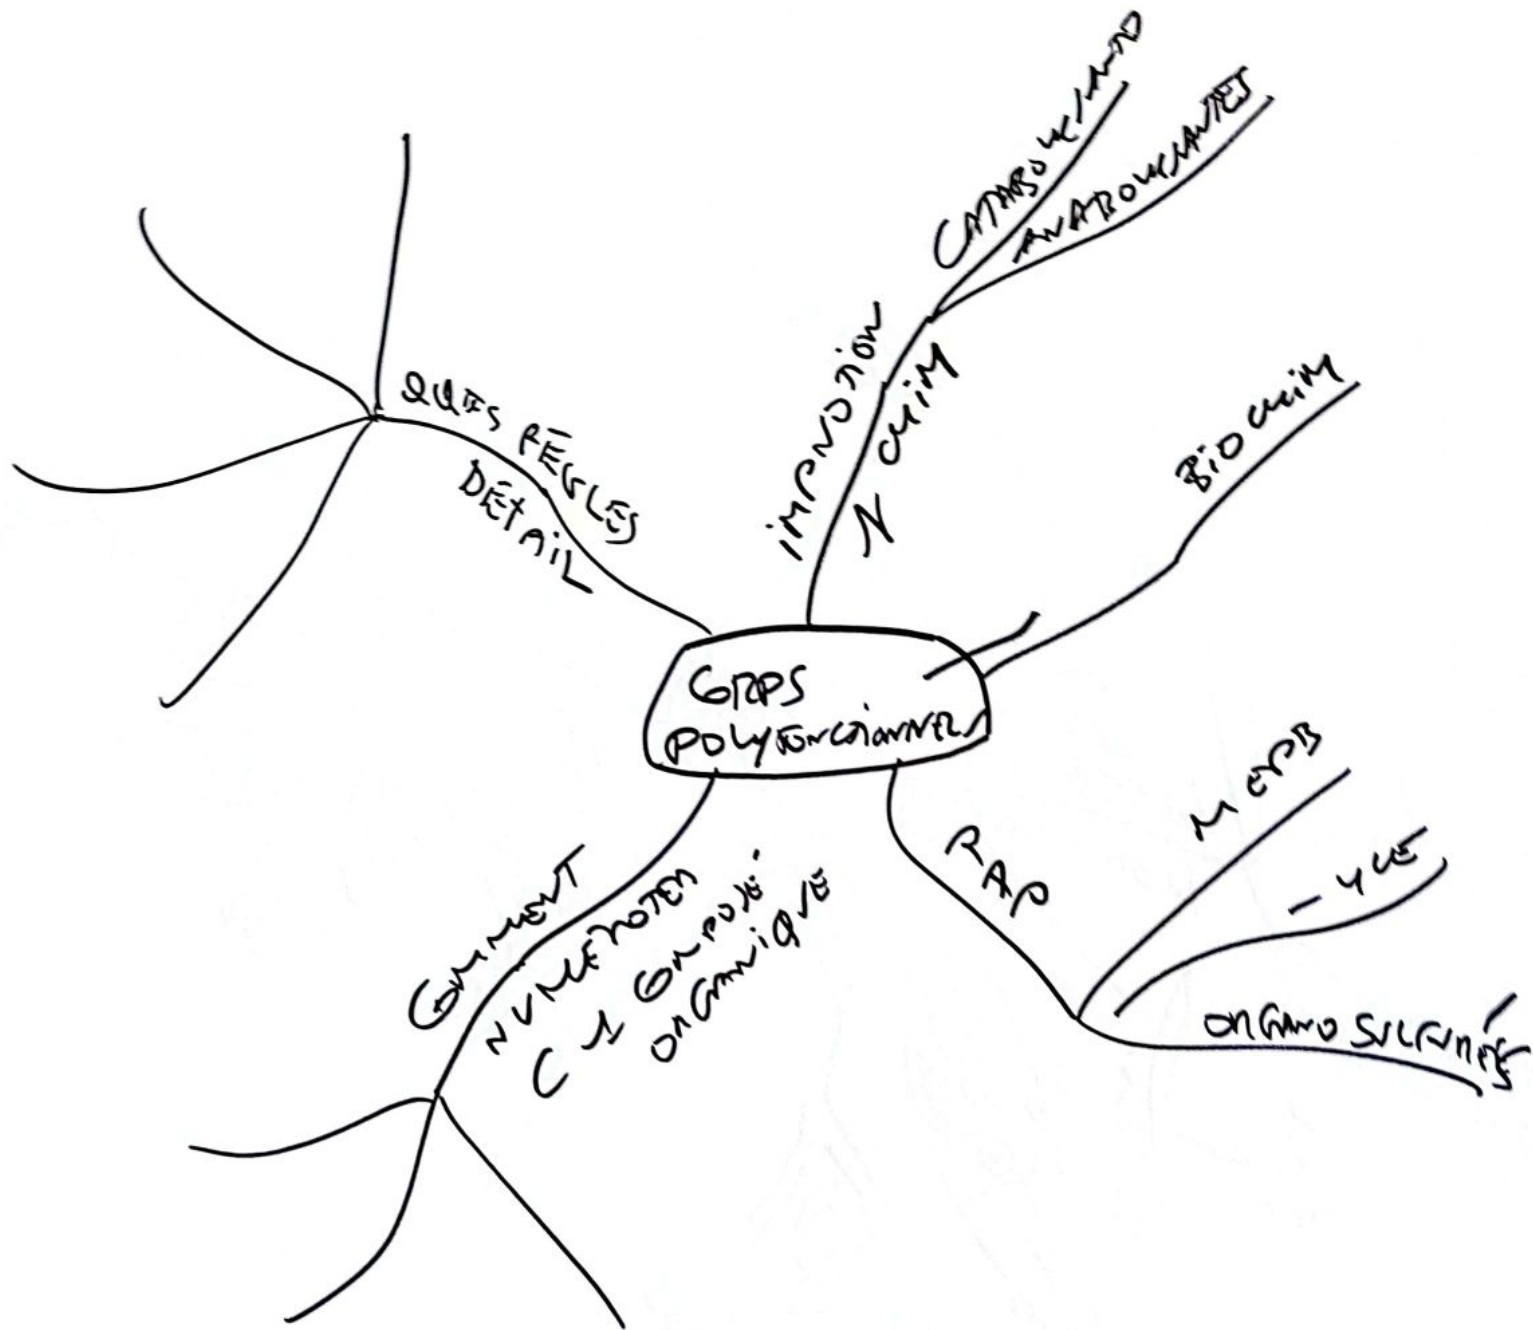 GRPS
POLYFONCTIONNELS
QQUES RÈGLES
DÉTAIL
N CHIM
CATABOLISANTS
ANABOLISANTES
BIOCHIM
RAP
MEPB
- YLE
ORGANO SULFURÉS
COMMENT
NUMÉROTER
C 1 COMPOSÉ
ORGANIQUE